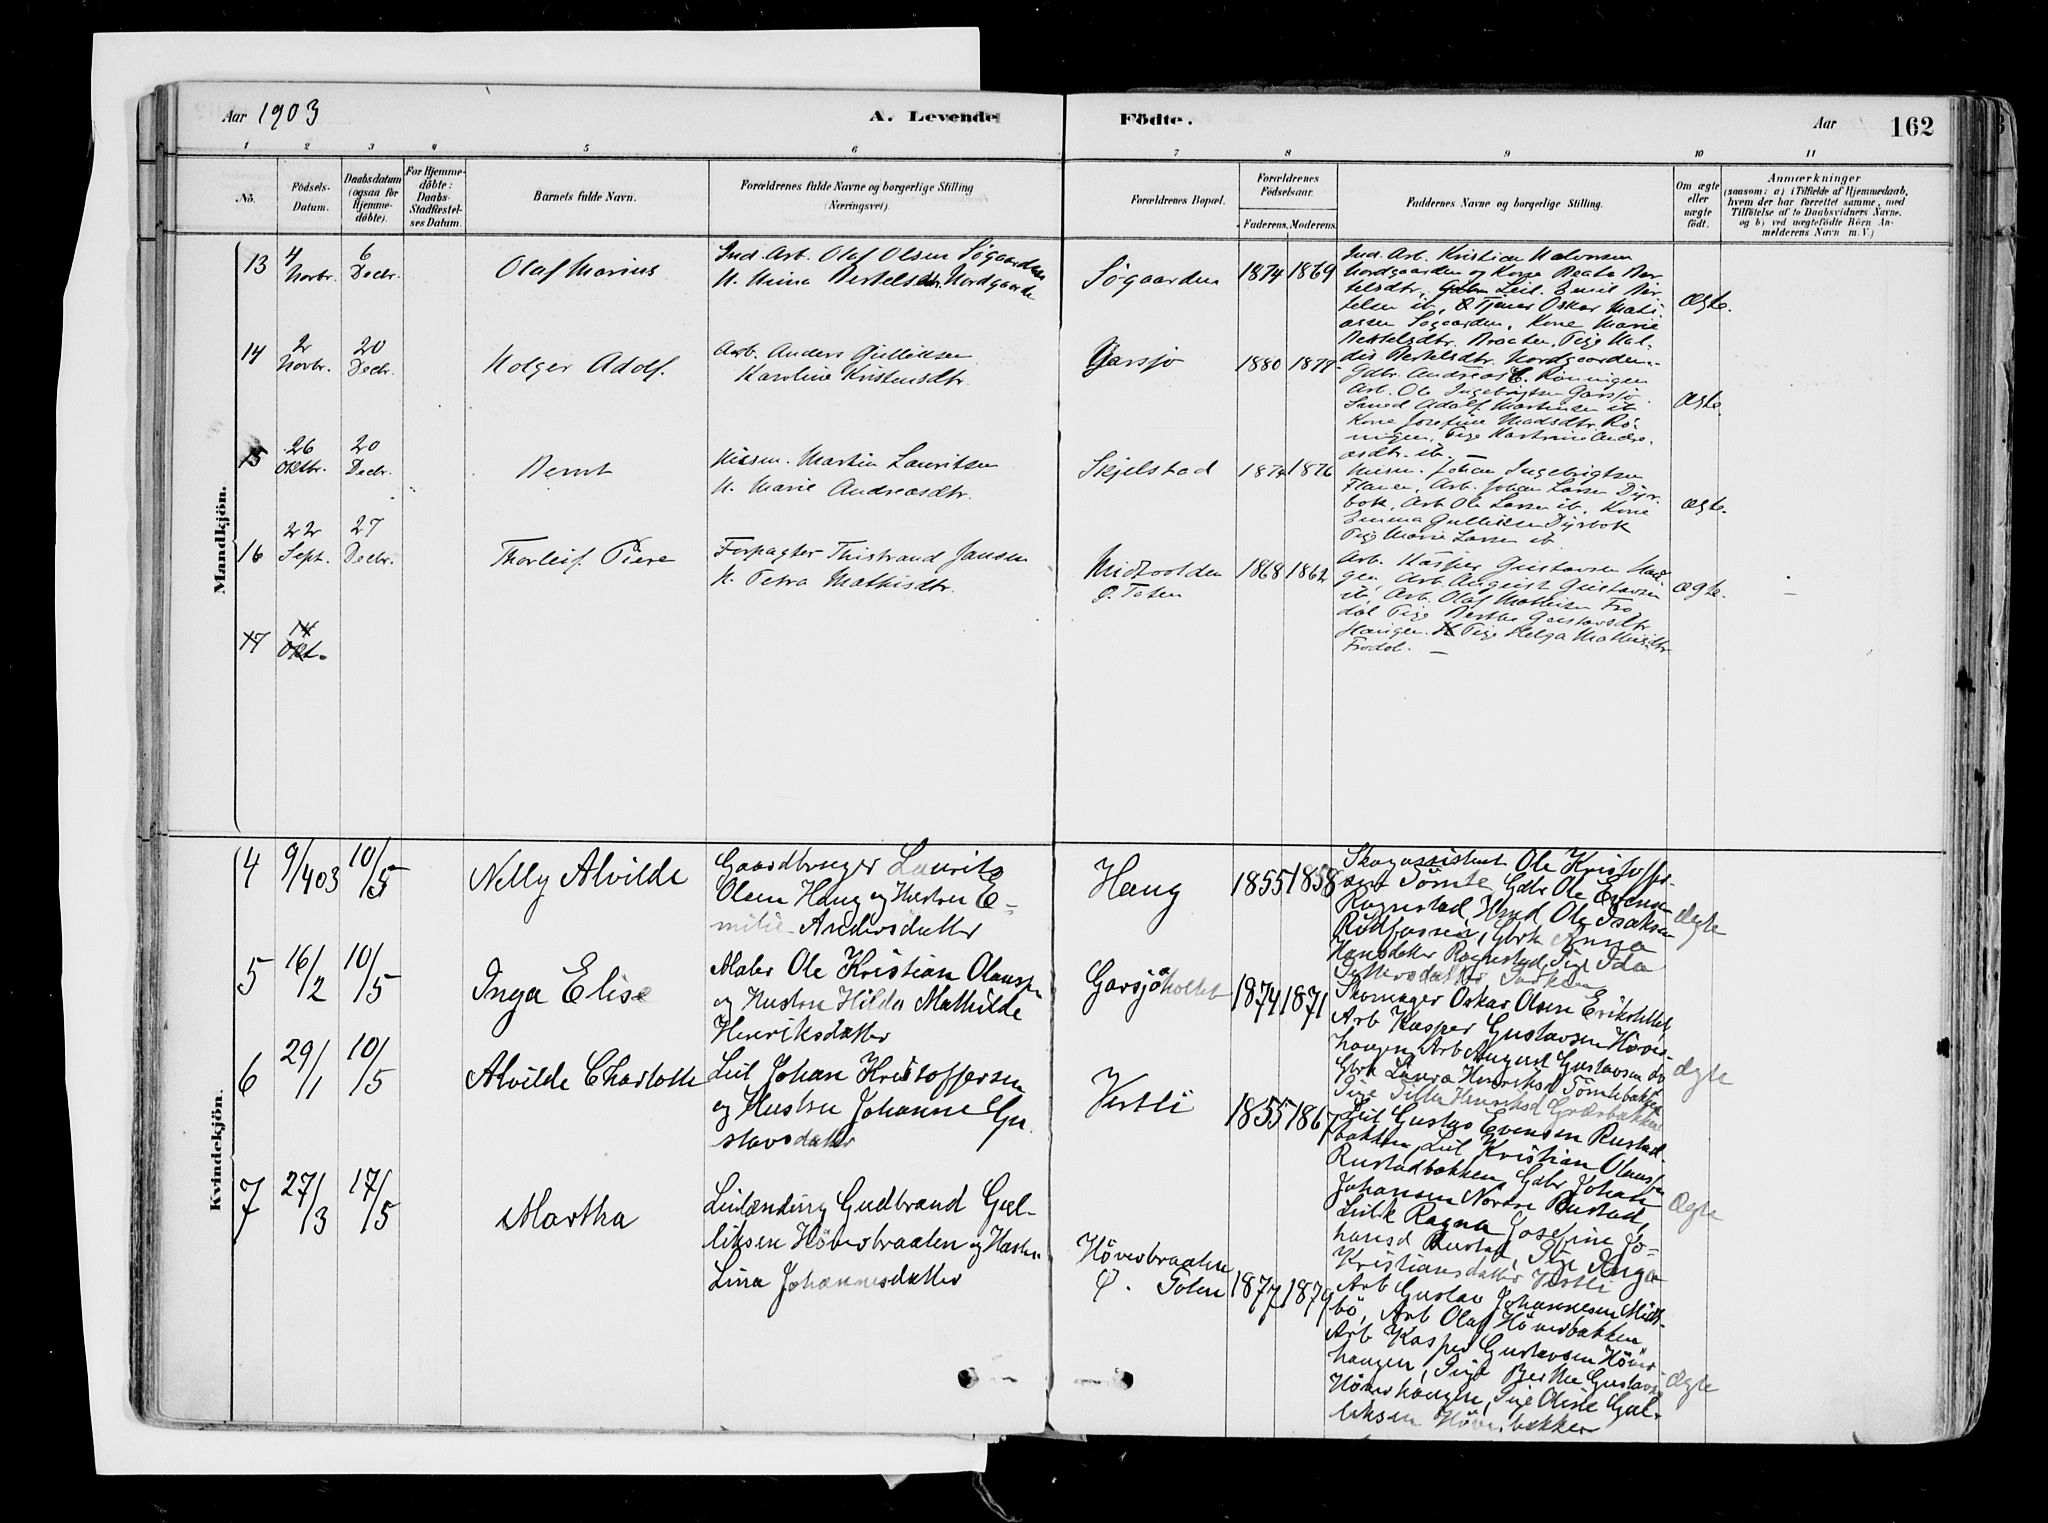 Aar 1903
A. Levende
Födte.
Aar
162
1 2 3 4 5 6 7 8 9 10 11
No.
Födsels-
Datum.
Daabsdatum
(ogsaa for
Hjemme-
döbte).
For Hjemme-
döbte:
Daabs-
Stadfæstel-
ses Datum.
Barnets fulde Navn.
Forældrenes fulde Navne og borgerlige Stilling
(Næringsvei).
Forældrenes Bopæl.
Forældrenes
Födselsaar.
Faderens. Moderens.
Faddernes Navne og borgerlige Stilling.
Om ægte
eller
uægte
födt.
Anmærkninger
(saasom: a) i Tilfælde af Hjemmedaab,
hvem der har forrettet samme, med
Tilföielse af to Daabsvidners Navne,
og b) ved uægtefödte Börn An-
melderens Navn m. V.)
Mandkjön.
13
4
Novbr.
6
Decbr.
Olaf Marius
Ind. Arb. Olaf Olsen Søgaarden
H. Mina Bertelsdtr. Nordgaarde
Søgaarden
1874 1869
Ind. Arb. Kristian Halvorsen
Nordgaarden og Kone Beate Ber-
telsdtr. Leil. Emil Ber-
telsen ib, Tjener Oskar Mati-
assen Søgaarden, Kone Marie
Bertelsdtr. Braaten, Pige Hal-
dis Bertelsdtr. Nordgaarden.
Ægte.
14
2
Novbr.
20
Decbr.
Holger Adolf.
Arb. Anders Gulliksen
Karoline Kristensdtr.
Garsjø
1880 1877
Gdbr. Andreas C. Rønningen
Arb. Ole Ingebrigtsen Garsjø.
Smed Adolf Martinsen ib
Kone Josefine Madsdtr. Rø-
ningen, Pige Martine Andre-
asdtr. ib. —
Ægte.
15
26
Oktbr.
20
Decbr.
Bernt
Husm. Martin Lauritsen
H. Marie Andreasdtr.
Skjelstad
1874 1876
Husm. Johan Ingebrigtsen
Flaen, Arb. Johan Larsen Dyr-
bok, Arb Ole Larsen ib. Kone
Emma Gulliksen Dyrbok
Pige Marie Larsen ib
Ægte.
16
22
Sept.
27
Decbr.
Thorleif. Piere
Forpagter Thistrand Jansen
H. Petra Mathisdtr.
Midtvolden
Ø. Toten
1868 1862
Arb. Kasper Gustavsen Hau-
gen, Arb. August Gustavsen
ib, Arb. Olaf Mathisen Fro
dol Pige Berthe Gustavsdtr
Haugen. Pige Helga Mathisdtr
Frodol. —
Ægte.
17
14
Okt.
Kvindekjön.
4
9/4 03
10/5
Nelly Alvilde
Gaardbruger Laurits
Olsen Haug og Hustru E-
milie Andersdatter
Haug
1855 1858
Skogassistent Ole Kristoffer-
sen Tömte, Gdbr Ole Evensen
Rognstad, Hmd Ole Isaksen
Rödfossen, Gbrk Anna
Hansdatter Rognstad, Pige Ida
Pettersdatter
Ægte
5
16/2
10/5
Inga Elise
Maler Ole Kristian Olausen
og Hustru Hilda Mathilde
Henriksdatter
Garsjöholtet
1874 1871
Skomager Oskar Olsen Eriksholtet,
Arb Kasper Gustavsen Höver-
haugen, Arb August Gustavsen do
Gbrk Laura Henriksd Tömtebakken
Pige Tilla Henriksd
Ægte
6
29/1
10/5
Alvilde Charlotte
Leil Johan Kristoffersen
og Hustru Johanne Gu
stavsdatter
Vestli
1855 1867
Leil Gustav Evensen Rustad-
bakken, Leil Kristian Olausen
Rustadbakken, Gdbr Johan
Johansen Nordre Rustad,
Leilk Ragna Josefine Jo-
hansd Rustad, Pige Inga
Kristiansdatter Vestli
Ægte
7
27/3
17/5
Martha
Leilænding Gudbrand Gul-
liksen Höversbraaten og Hustru
Lina Johannesdatter
Höversbraaten
Ø. Toten
1877 1879
Arb Gustav Johannesen Midt-
bö, Arb Olaf Höversbakken
Arb Kasper Gustavsen Höver
haugen, Pige Berthe Gustavs
Höverhaugen, Pige Oline Gul-
liksen Höversbakken
Ægte